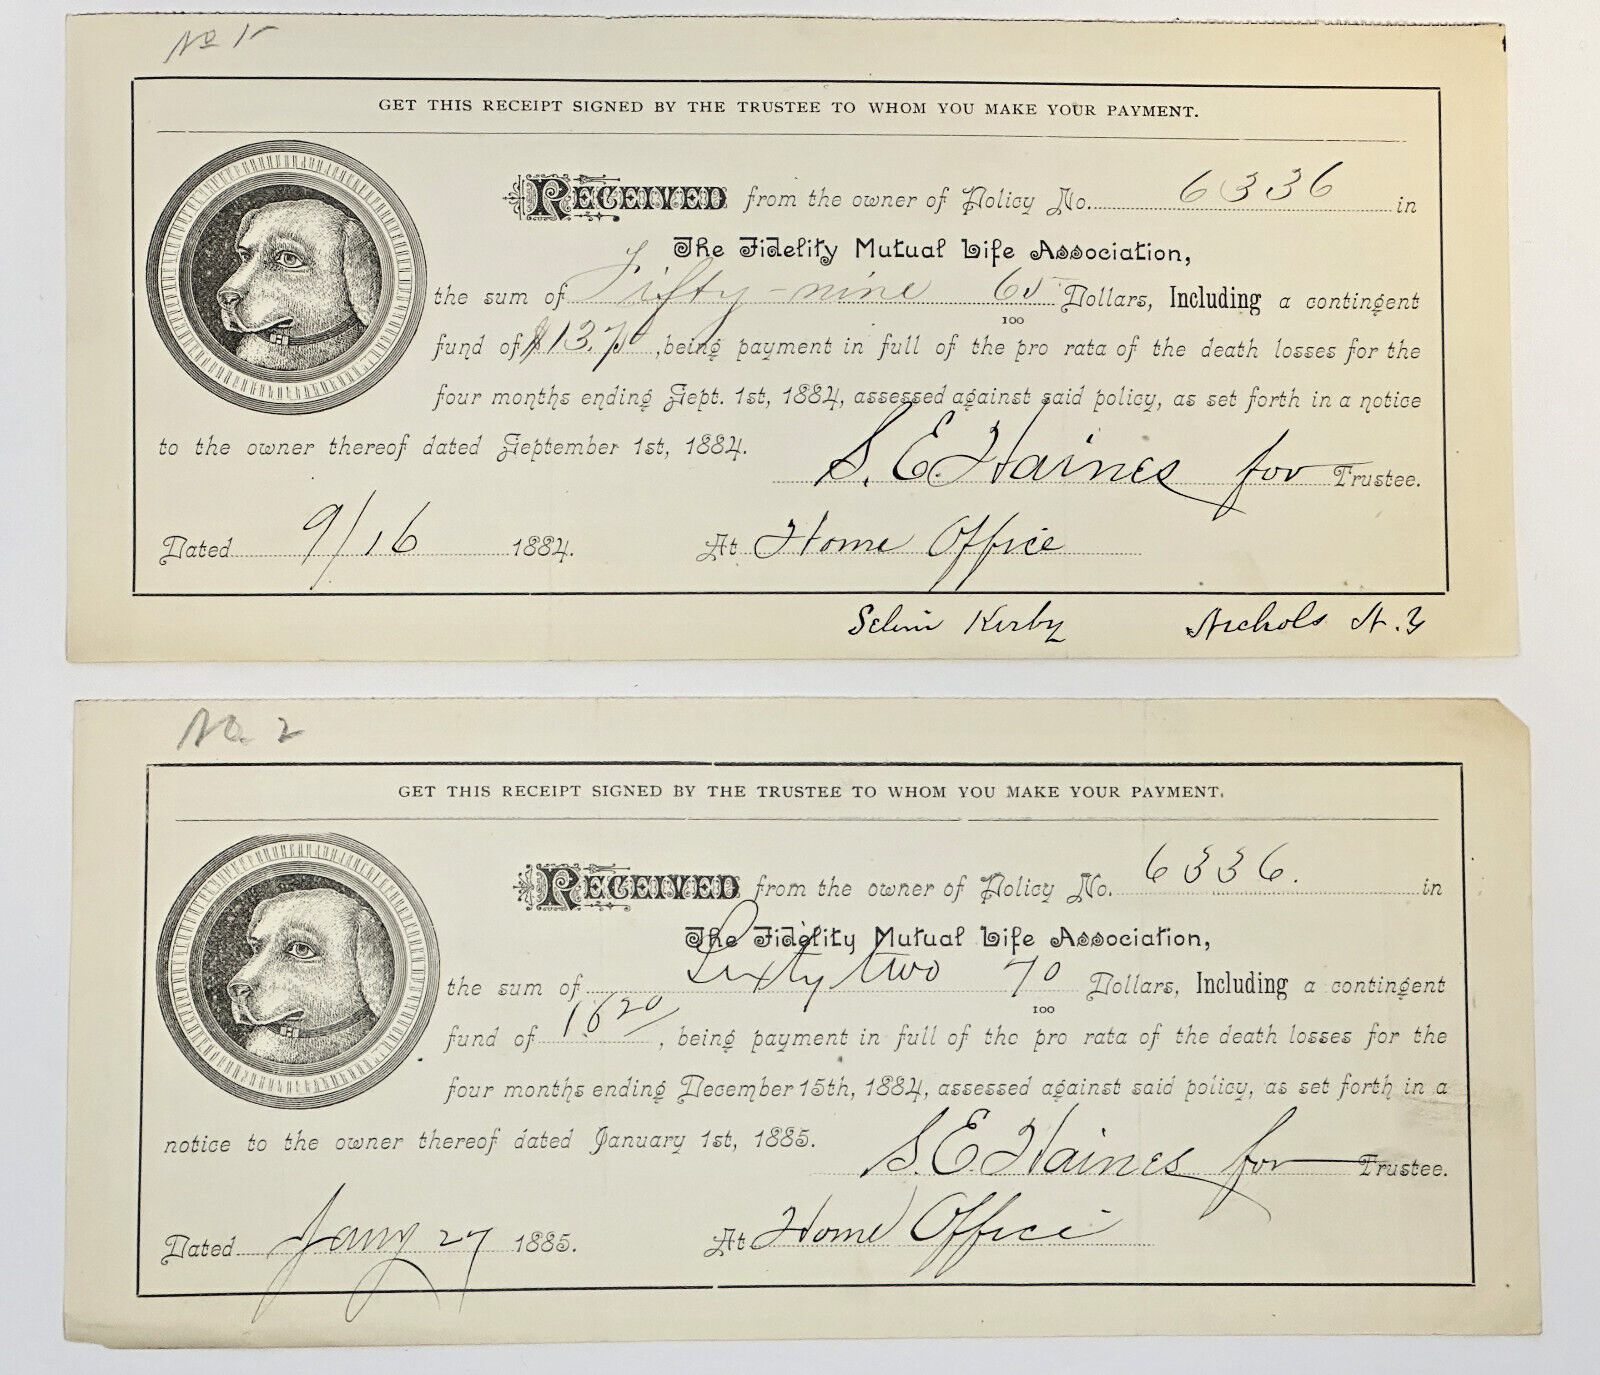 No 1
GET THIS RECEIPT SIGNED BY THE TRUSTEE TO WHOM YOU MAKE YOUR PAYMENT.
RECEIVED from the owner of Policy No. 6336 in
The Fidelity Mutual Life Association,
the sum of Fifty-nine 65/100 Dollars, Including a contingent
fund of $13.70, being payment in full of the pro rata of the death losses for the
four months ending Sept. 1st, 1884, assessed against said policy, as set forth in a notice
to the owner thereof dated September 1st, 1884.
S. E. Haines for Trustee.
Dated 9/16 1884. At Home Office
Kirby Nichols N.Y
No. 2
GET THIS RECEIPT SIGNED BY THE TRUSTEE TO WHOM YOU MAKE YOUR PAYMENT.
RECEIVED from the owner of Policy No. 6336. in
The Fidelity Mutual Life Association,
the sum of Sixty two 70/100 Dollars, Including a contingent
fund of 16 20/, being payment in full of the pro rata of the death losses for the
four months ending December 15th, 1884, assessed against said policy, as set forth in a
notice to the owner thereof dated January 1st, 1885.
S. E. Haines for Trustee.
Dated Jany 27 1885. At Home Office